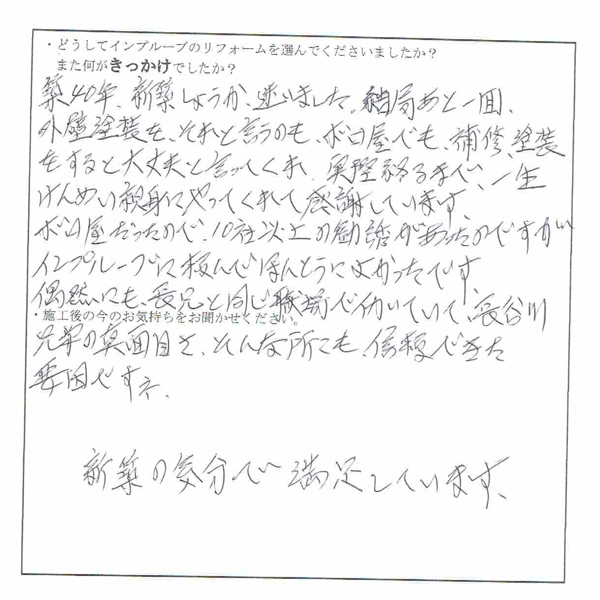 ・どうしてインプルーブのリフォームを選んでくださいましたか？
また何がきっかけでしたか？
築40年、新築しようか、迷いました。結局あと一回、
外壁塗装を、それと言うのも、ボロ屋でも、補修、塗装
をすると大丈夫と言ってくれ、実際終るまで、一生
けんめい親身にやってくれて感謝しています。
ボロ屋だったので、10社以上の勧誘があったのですが
インプルーブに頼んでほんとうによかったです。
偶然にも、長兄と同じ職場で働いていて、長谷川
・施工後の今のお気持ちをお聞かせください。
兄弟の真面目さ、そんな所にも、信頼できた
要因ですネ、
新築の気分で満足しています。